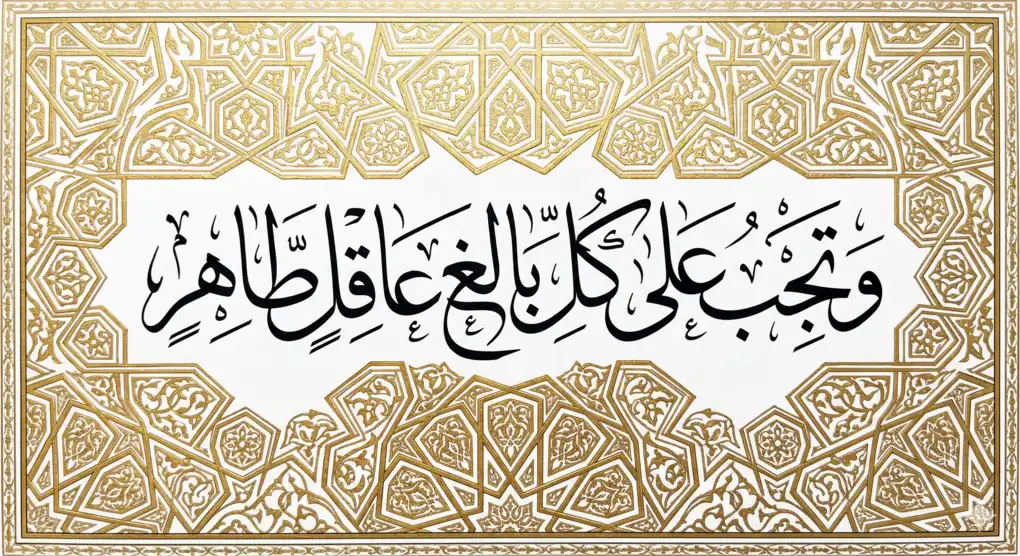 وَتَجِبُ عَلَى كُلِّ بَالغٍ عَاقِلٍ طَّاهِرٍ